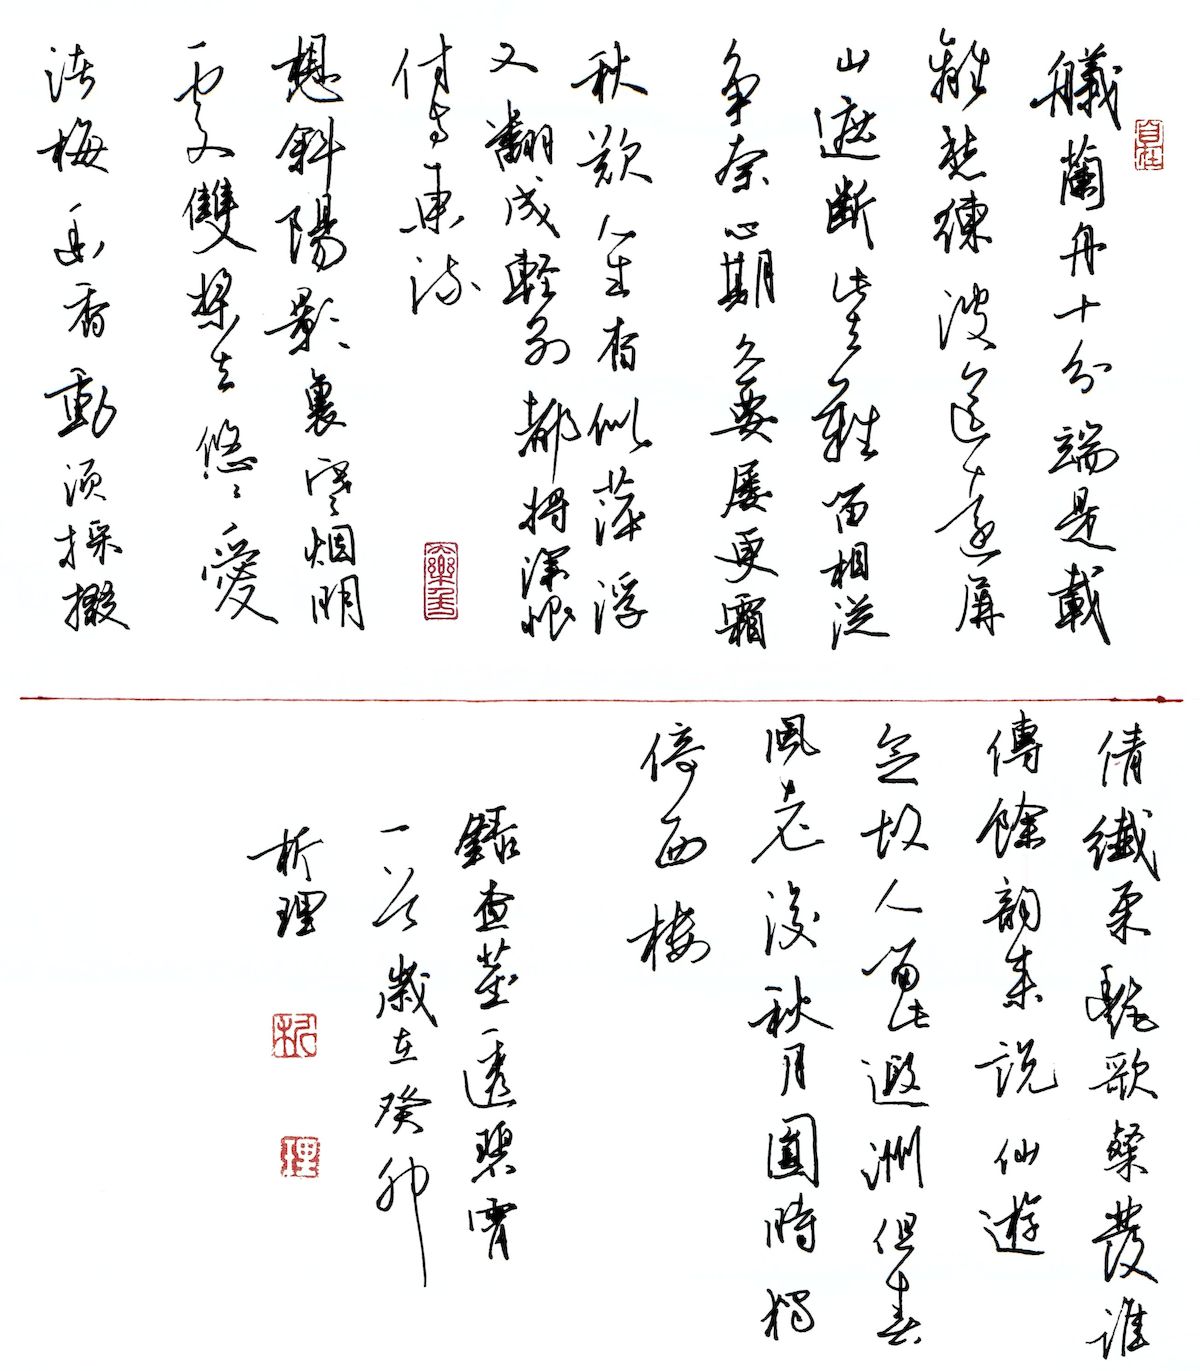 自在
艤蘭舟十分端是載
離愁練波送遠屏
山遮斷此去難留相從
爭奈心期久要屢更霜
秋歎人生杳似萍浮
又翻成輕別都將深恨
付與東流
想斜陽影裏寒烟明
處雙槳去悠々愛
渚梅幽香動須採掇
倩纖柔艷歌粲發誰
傳餘韻來說仙遊
念故人留此遐洲但春
風老後秋月圓時獨
倚西樓
錄查荎透碧霄
一首歲在癸卯
析理
析
理